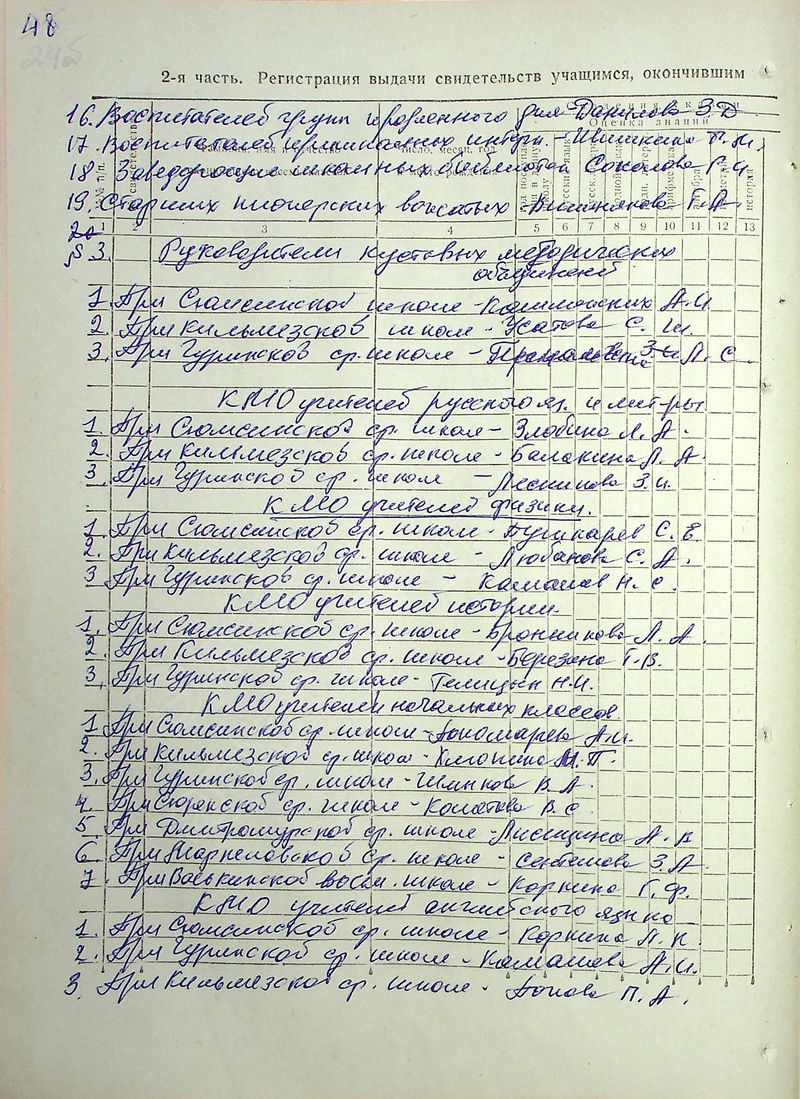 48
2-я часть. Регистрация выдачи свидетельств учащимся, окончившим
16. Воспитателей групп продленного дня Данилова З.Д
17. Воспитателей пришкольных интерн. - Ившина
18 Заведующие школьных библиотек Соколова Г.И
19. Старших пионерских вожатых - Вишнякова Г.А.
20
1 3 4 5 6 7 8 9 10 11 12 13
§ 3. Руководители кустовых методических
объединений
1. При Сюмсинской школе - Калимонских А.И
2. При Кильмезской школе - Усатова С. И.
3. При Гуринской ср. школе - Л. С.
КМО учителей русского яз. и лит-ры
1. При Сюмсинской ср. школе - Злобина Л. А.
2. При Кильмезской ср. школе - Балакина Л. А.
3. При Гуринской ср. школе - Лесникова З.И.
КМО учителей физики.
1. При Сюмсинской ср. школе - Бушмарев С. Е.
2. При Кильмезской ср. школе - Любанова С. А.
3 При Гуринской ср. школе - Камашев Н. С.
КМО учителей истории.
1. При Сюмсинской ср. школе - Бронникова Л. А.
2. При Кильмезской ср. школе - Березина Г.В.
3. При Гуринской ср. школе - Телицын Н.И.
КМО учителей начальных классов.
1 При Сюмсинской ср. школе - Пономарева А.И.
2. При Кильмезской ср. школе - М.П.
3. При Гуринской ср. школе - Шмыкова В. А.
4. При Сюрекской ср. школе - Копатева В. С
5 При Дмитрошурской ср. школе - Лисицина А. В
6. При Маркеловской ср. школе - Сентемова З.А.
7. При Васькинской восьм. школе - Коркина Г. Ф.
КМО учителей английского языка
1. При Сюмсинской ср. школе - Коркина Л. К.
2. При Гуринской ср. школе - Камашева А.И.
3. При Кильмезской ср. школе - Попова П. А.